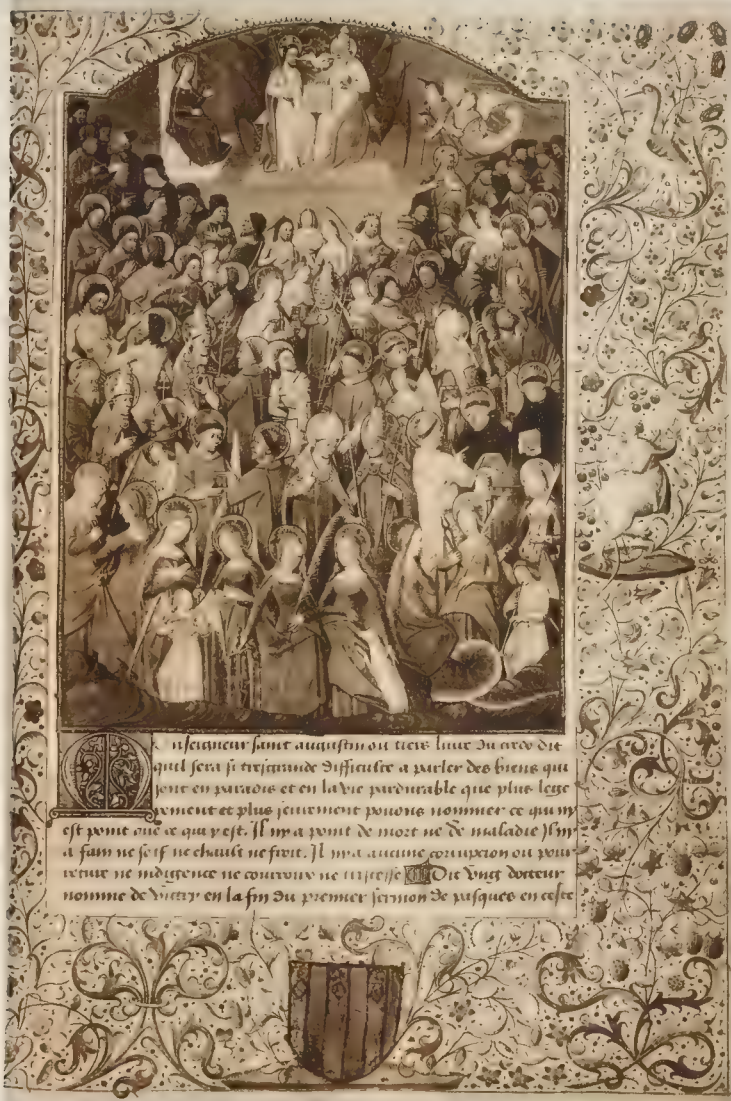 Monseigneur saint augustin ou tiers livre du credo dit
quil sera si tresgrande difficulte a parler des biens qui
sont en paradis et en la vie pardurable que plus lege
rement et plus seurement pouons nommer ce qui ny
est point que ce qui y est. Il ny a point de mort ne de maladie Il ny
a fain ne soif ne chault ne froit. Il ny a aucune corrupcion ou pour
reture ne indigence ne courroux ne tristesse Dit ung docteur
nomme de vitry en la fin du premier sermon de pasques en ceste